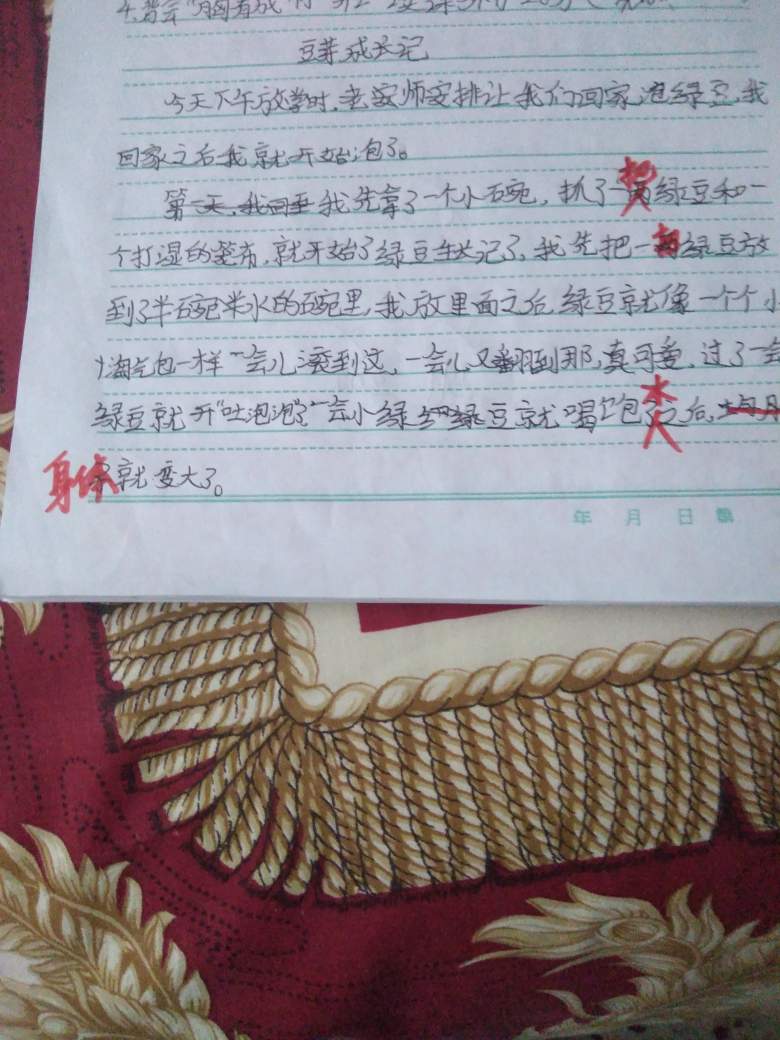 4.背会"胸有成竹
豆芽成长记
今天下午放学时,老师安排让我们回家泡绿豆,我
回家之后我就开始泡了。
第一天,我回垂我先拿了一个小碗,抓了一把绿豆和一
个打湿的笼布,就开始了绿豆生长记了,我先把一绿豆放
到了半碗米水的碗里,我放里面之后,绿豆就像一个个小
淘气包一样一会儿滚到这,一会儿又翻到那,真可爱,过了一会
绿豆就开"吐泡泡"了一会小绿绿豆就喝饱水之后,
身体就变大了。
年 月 日